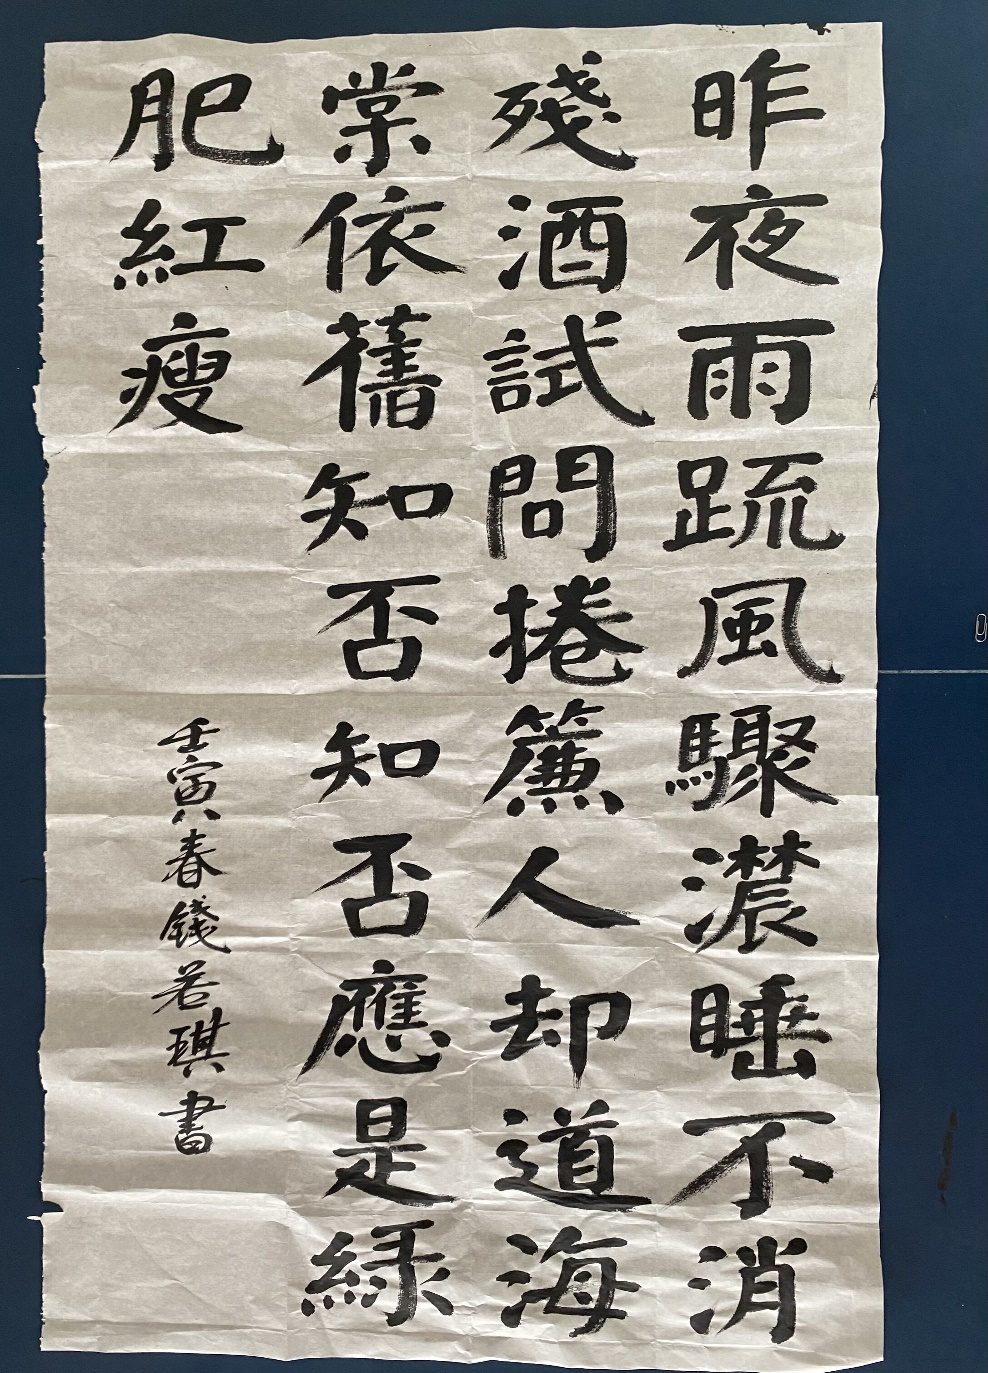 昨夜雨疏風驟濃睡不消
殘酒試問捲簾人却道海
棠依舊知否知否應是綠
肥紅瘦
壬寅春錢若琪書